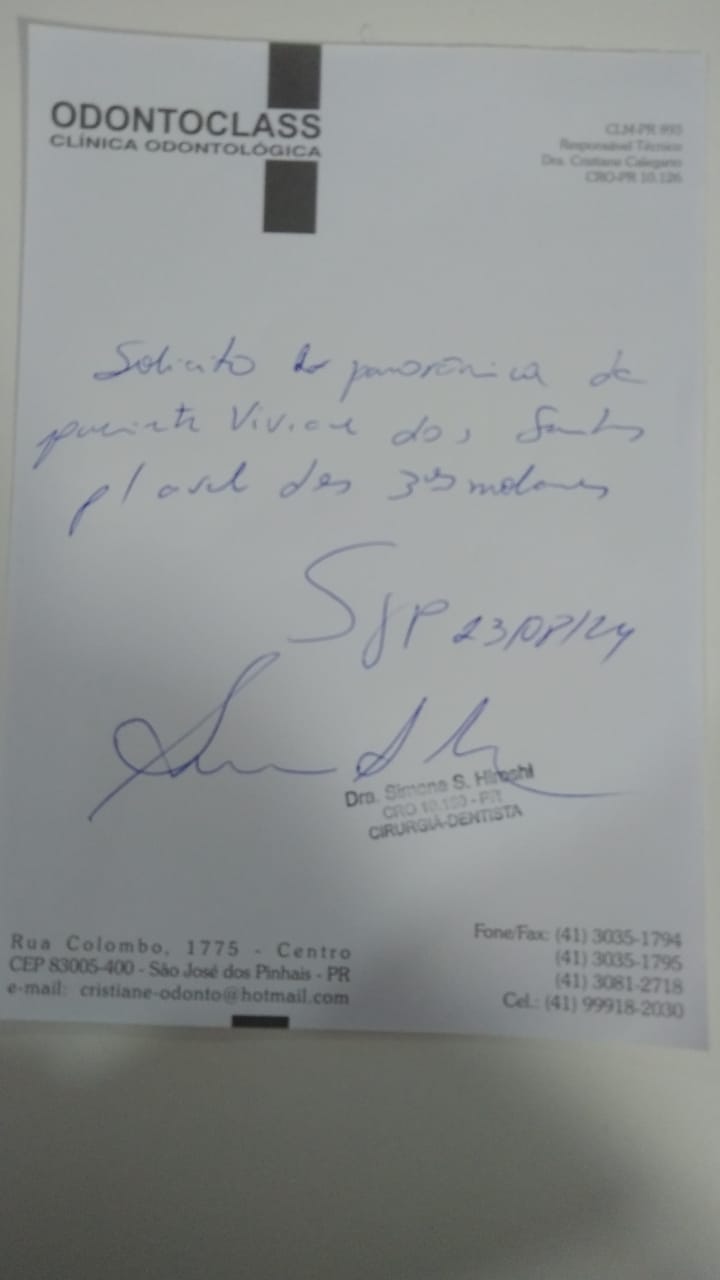 ODONTOCLASS
CLÍNICA ODONTOLÓGICA
CLM-PR 893
Responsável Técnico
Dra. Cristiane Calegario
CRO-PR 10.126
Solicito panorâmica da
paciente Viviane dos Santos
p/ aval dos 3ºs molares
SJP 23/08/24
Dra. Simone S. Hiroshi
CRO - PR
CIRURGIÃ-DENTISTA
Rua Colombo, 1775 - Centro
CEP 83005-400 - São José dos Pinhais - PR
e-mail: cristiane-odonto@hotmail.com
Fone/Fax: (41) 3035-1794
(41) 3035-1795
(41) 3081-2718
Cel.: (41) 99918-2030